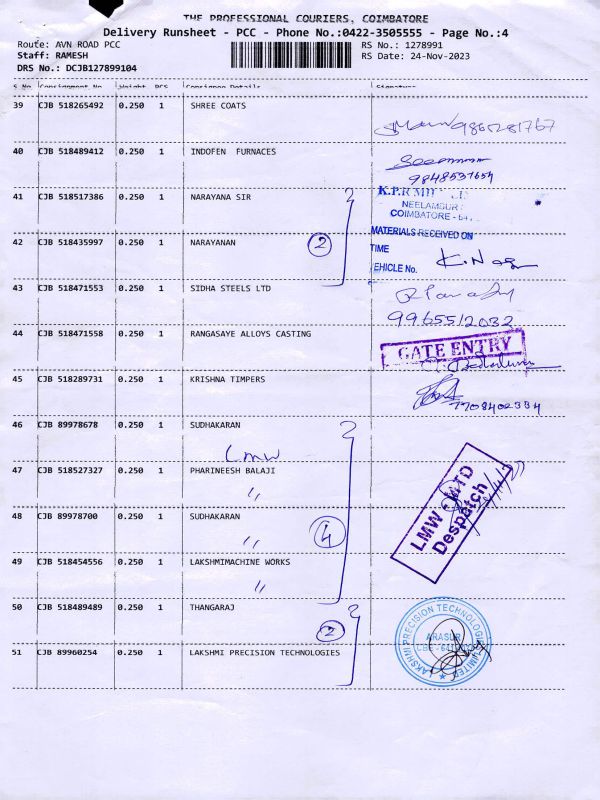 THE PROFESSIONAL COURIERS, COIMBATORE
Delivery Runsheet - PCC - Phone No.:0422-3505555 - Page No.:4
Route: AVN ROAD PCC
RS No.: 1278991
Staff: RAMESH
RS Date: 24-Nov-2023
DRS No.: DCJB127899104
S.No Consignment No Weight PCS Consignee Details Signature
39 CJB 518265492 0.250 1 SHREE COATS
9865281767
40 CJB 518489412 0.250 1 INDOFEN FURNACES
9848531654
41 CJB 518517386 0.250 1 NARAYANA SIR
K.P.R MI
NEELAMBUR
COIMBATORE - 64
MATERIALS RECEIVED ON
42 CJB 518435997 0.250 1 NARAYANAN
2
TIME
EHICLE No.
43 CJB 518471553 0.250 1 SIDHA STEELS LTD
9965512032
44 CJB 518471558 0.250 1 RANGASAYE ALLOYS CASTING
GATE ENTRY
45 CJB 518289731 0.250 1 KRISHNA TIMPERS
7708402334
46 CJB 89978678 0.250 1 SUDHAKARAN
LMW
47 CJB 518527327 0.250 1 PHARINEESH BALAJI
"
LMW - MTD
Despatch
48 CJB 89978700 0.250 1 SUDHAKARAN
"
4
49 CJB 518454556 0.250 1 LAKSHMIMACHINE WORKS
"
50 CJB 518489489 0.250 1 THANGARAJ
2
LAKSHMI PRECISION TECHNOLOGIES LIMITED
ARASUR
51 CJB 89960254 0.250 1 LAKSHMI PRECISION TECHNOLOGIES